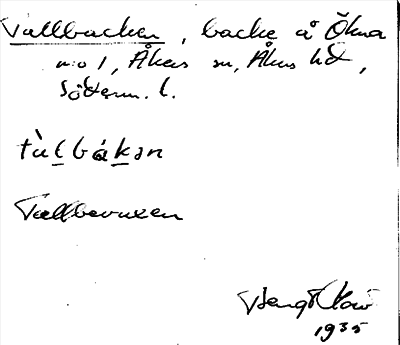 Tallbacken, backe å Ökna
no 1, Åkers sn, Åkers hd,
Söderm. l.
tàl̲bák̲ən
Tallbevuxen
Bengt
1935